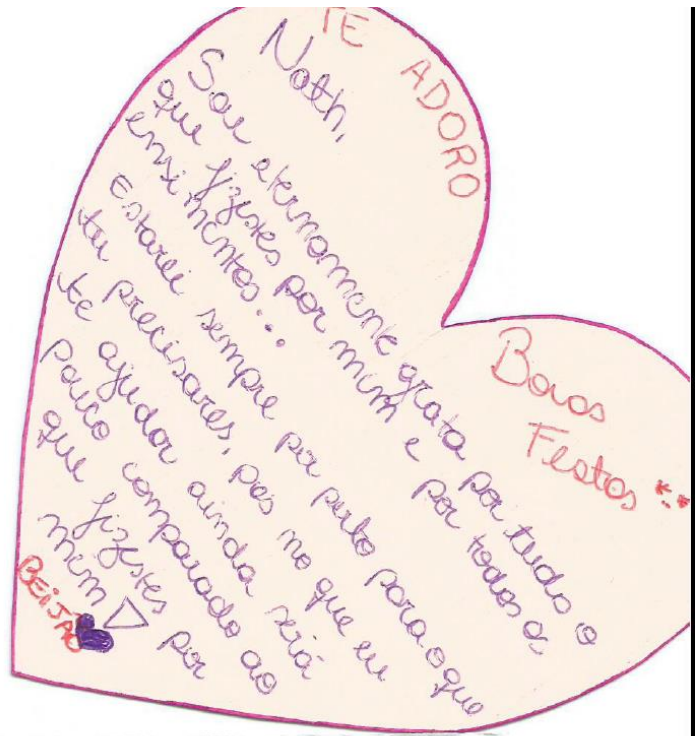 TE ADORO
Nath,
Sou eternamente grata por tudo o
que fizestes por mim e por todos os
ensimentos...
Estarei sempre por perto para o que
tu precisares, pos no que eu
te ajudar ainda será
pouco comparado ao
que fizestes por
mim
BEIJÃO
Boas
Festas